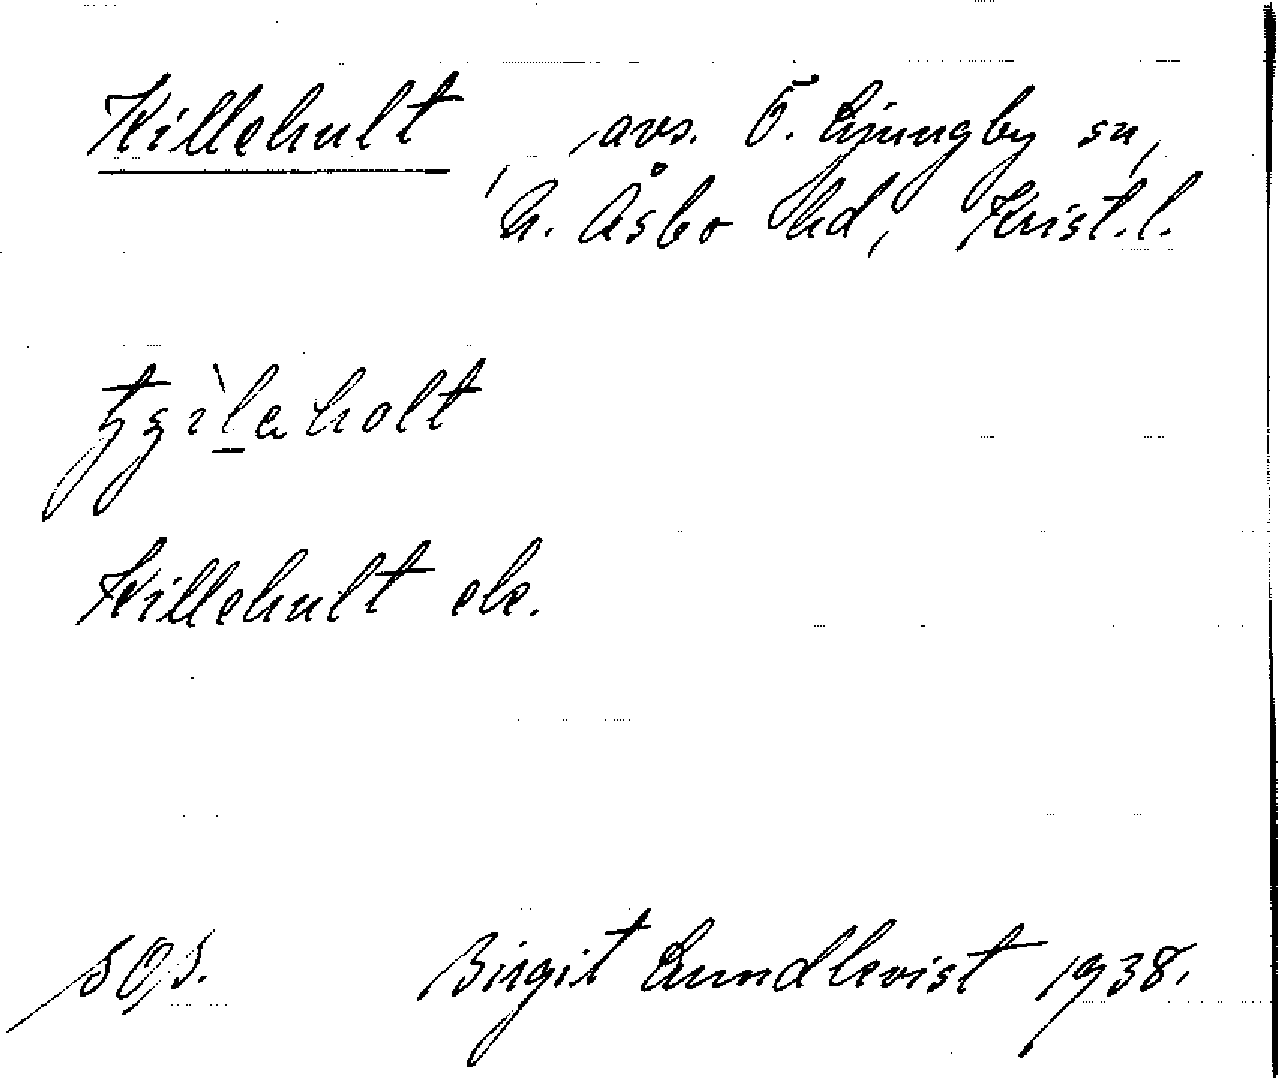 Killehult, avs. Ö. Ljungby sn,
N. Åsbo hd, Krist. l.
Killehult ek.
Birgit Lundkvist 1938.